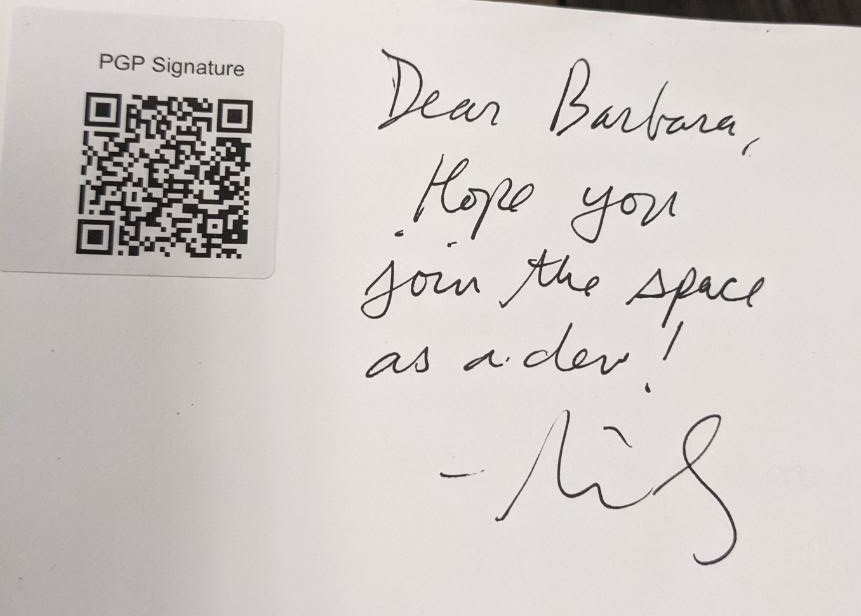 PGP Signature
Dear Barbara,
Hope you
join the space
as a dev!